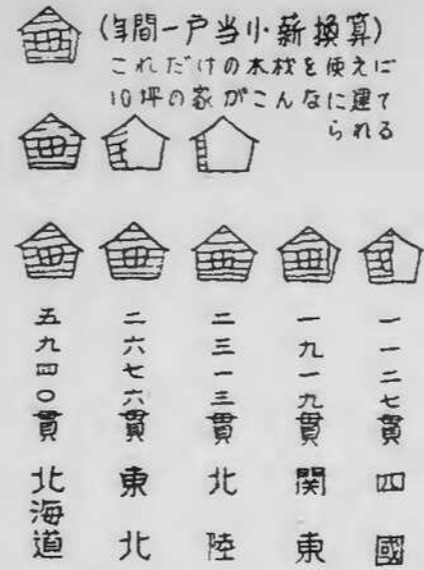 (年間一戸当小・薪換算)
これだけの木材を使えば
10坪の家がこんなに建て
られる
五九四〇貫 北海道
二六七六貫 東北
二三一三貫 北陸
一九一九貫 関東
一一二七貫 四國